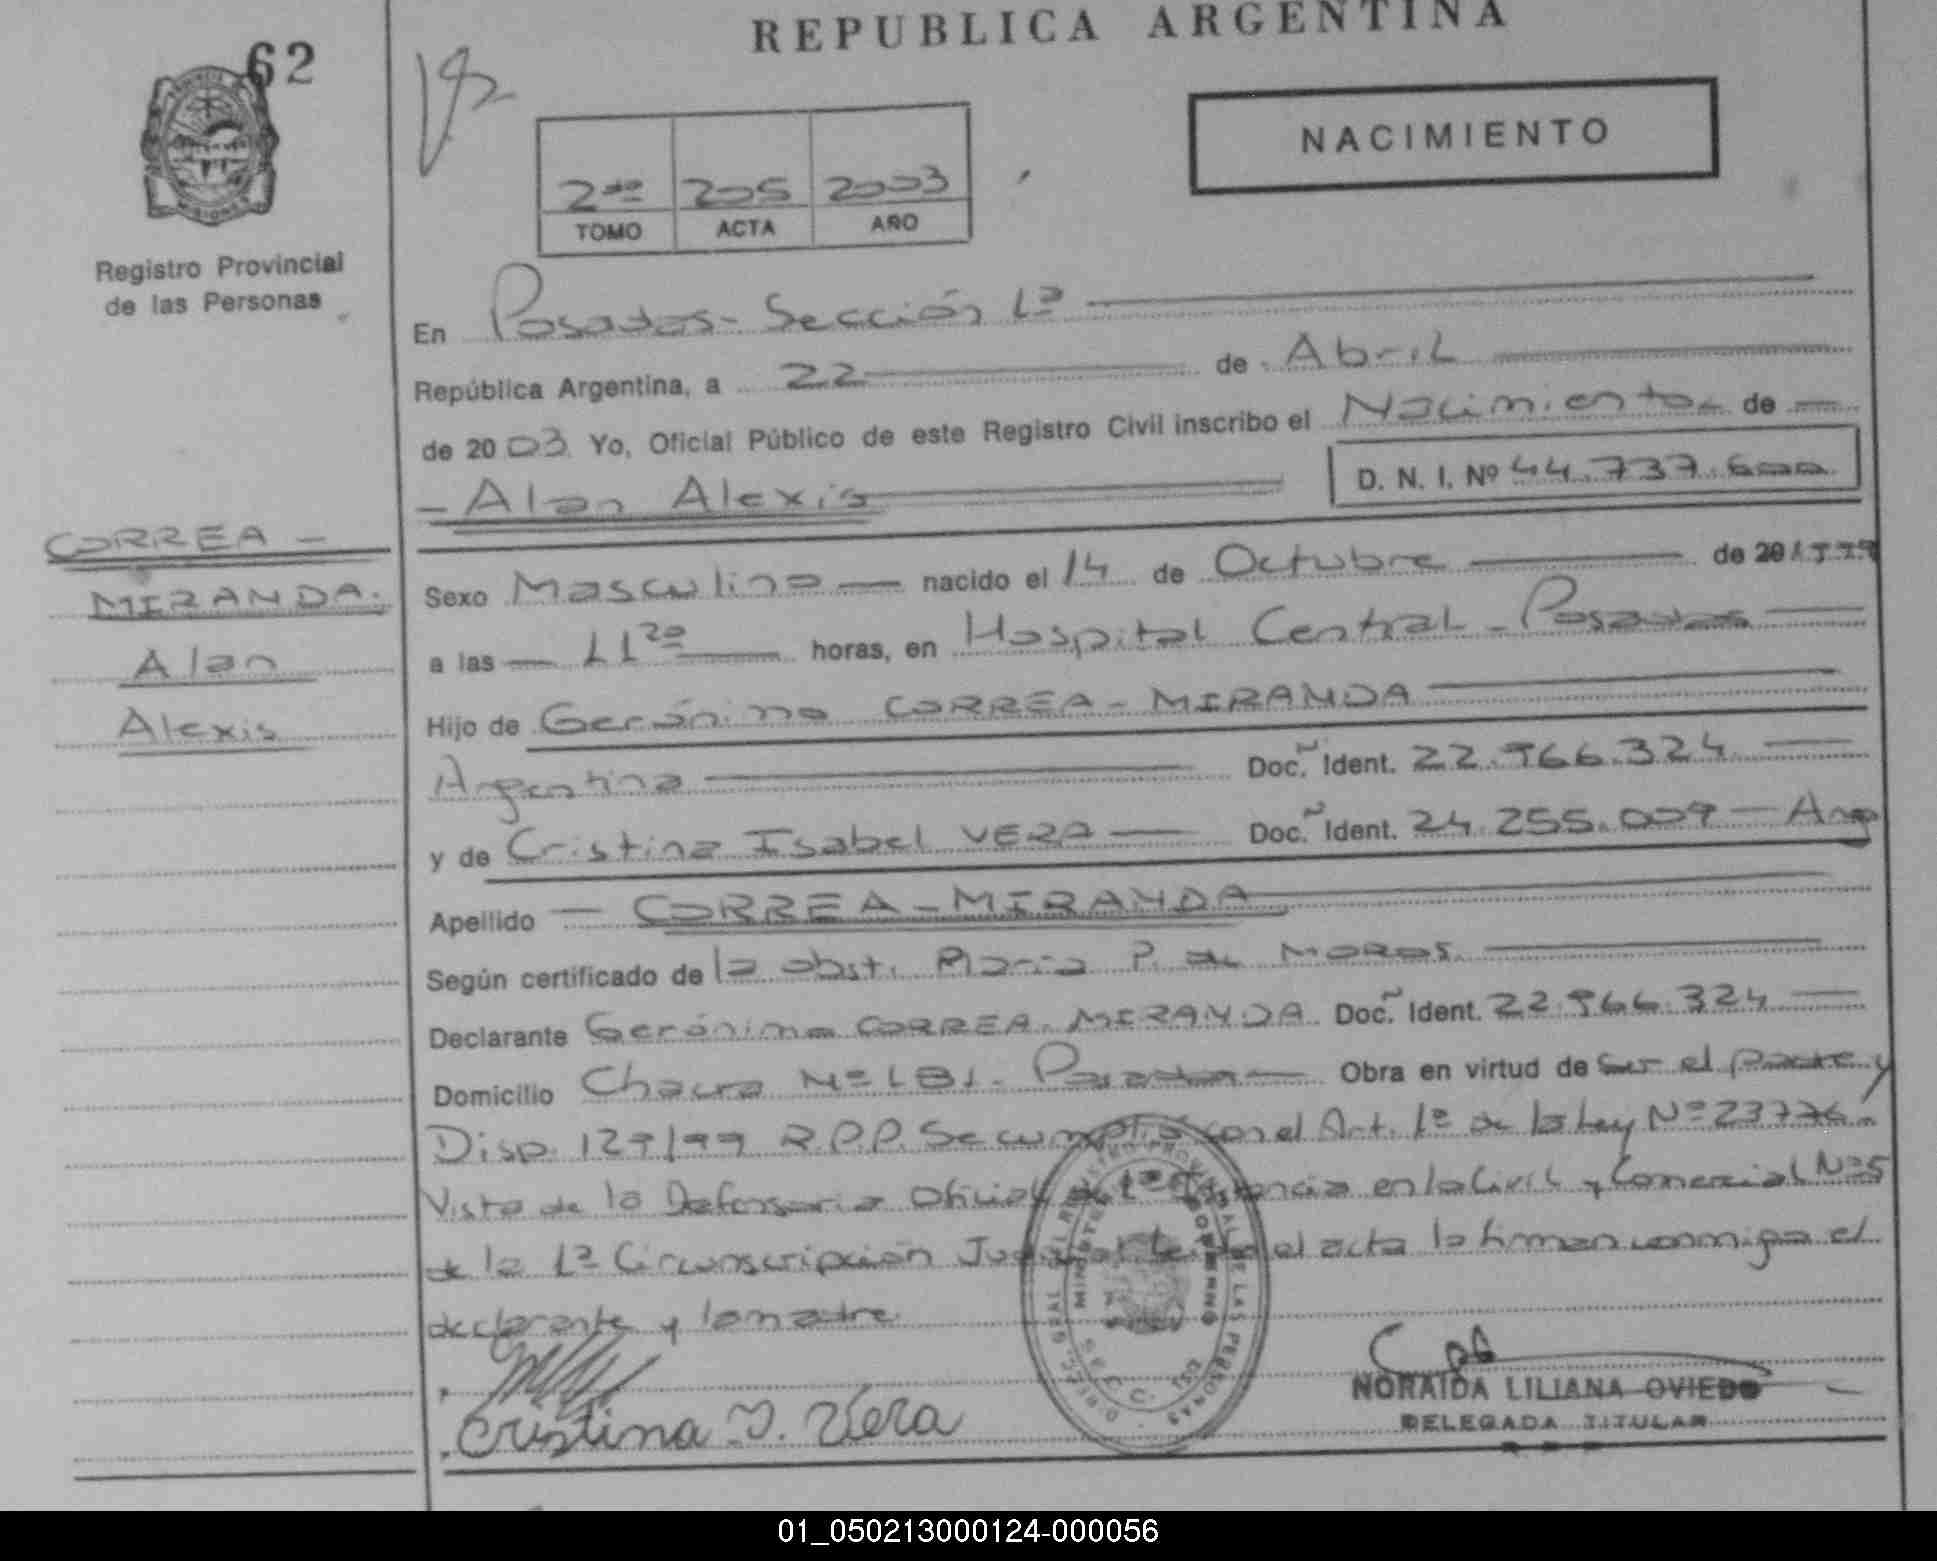 REPUBLICA ARGENTINA
62
NACIMIENTO
2do 205 2003
TOMO ACTA AÑO
Registro Provincial
de las Personas
En Posadas - Sección 1ª
República Argentina, a 22 de Abril
de 2003 Yo, Oficial Público de este Registro Civil inscribo el Nacimiento de
Alan Alexis D. N. I. Nº 44.737.600
CORREA -
MIRANDA.
Alan
Alexis
Sexo Masculino nacido el 14 de Octubre de
a las 11²⁰ horas, en Hospital Central - Posadas
Hijo de Gerónimo CORREA - MIRANDA
Argentina Doc. Ident. 22.966.324
y de Cristina Isabel VERA Doc. Ident. 24.255.009 - Arg
Apellido CORREA - MIRANDA
Según certificado de la obst. María P. de
Declarante Gerónimo CORREA - MIRANDA Doc. Ident. 22.966.324
Domicilio Chacra Nº 181 - Posadas Obra en virtud de ser el padre y
Disp. 129/99 R.P.P. Se cumplió con el Art. 1º de la Ley Nº 23776.
Vista de la Defensoria Oficial de 1ª Instancia en lo Civil y Comercial Nº 5
de la 1ª Circunscripción Judicial leida el acta la firman conmigo el
declarante y la madre.
Cristina I. Vera
NORAIDA LILIANA OVIEDO
DELEGADA TITULAR
01_050213000124-000056